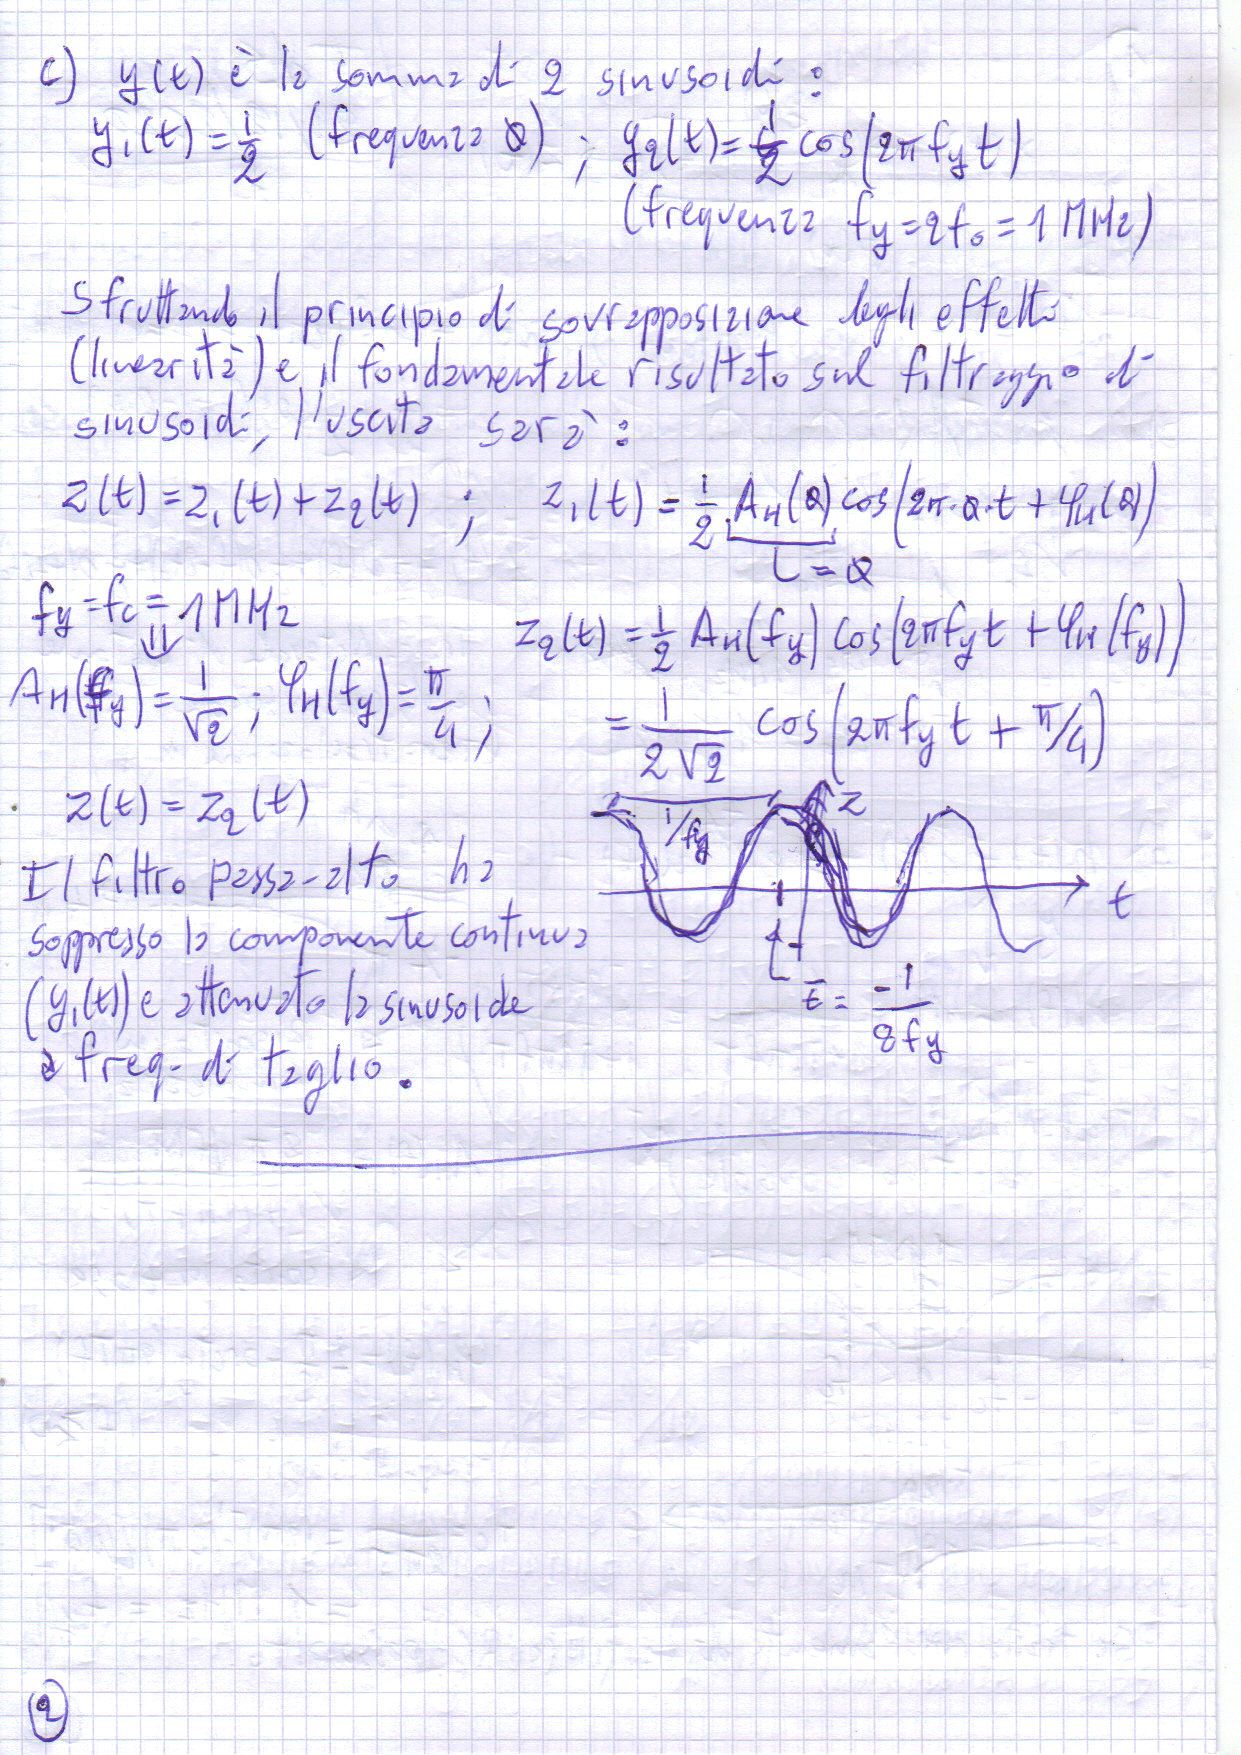 c) y(t) è la somma di 2 sinusoidi:
y₁(t) = 1/2 (frequenza 0) ; y₂(t) = 1/2 cos(2π fy t)
(frequenza fy = 2f₀ = 1 MHz)
Sfruttando il principio di sovrapposizione degli effetti
(linearità) e il fondamentale risultato sul filtraggio di
sinusoidi, l'uscita sarà:
z(t) = z₁(t) + z₂(t) ; z₁(t) = 1/2 · A_H(0) cos(2π·0·t + φ_H(0))
= 0
fy = fc = 1 MHz
⇓
z₂(t) = 1/2 A_H(fy) cos(2π fy t + φ_H(fy))
A_H(fy) = 1/√2 ; φ_H(fy) = π/4 ;
= 1/(2√2) cos(2π fy t + π/4)
z(t) = z₂(t)
z
1/fy
t
Il filtro passa-alto ha
soppresso la componente continua
(y₁(t)) e attenuato la sinusoide
a freq. di taglio.
t̄ = -1/(8fy)
2